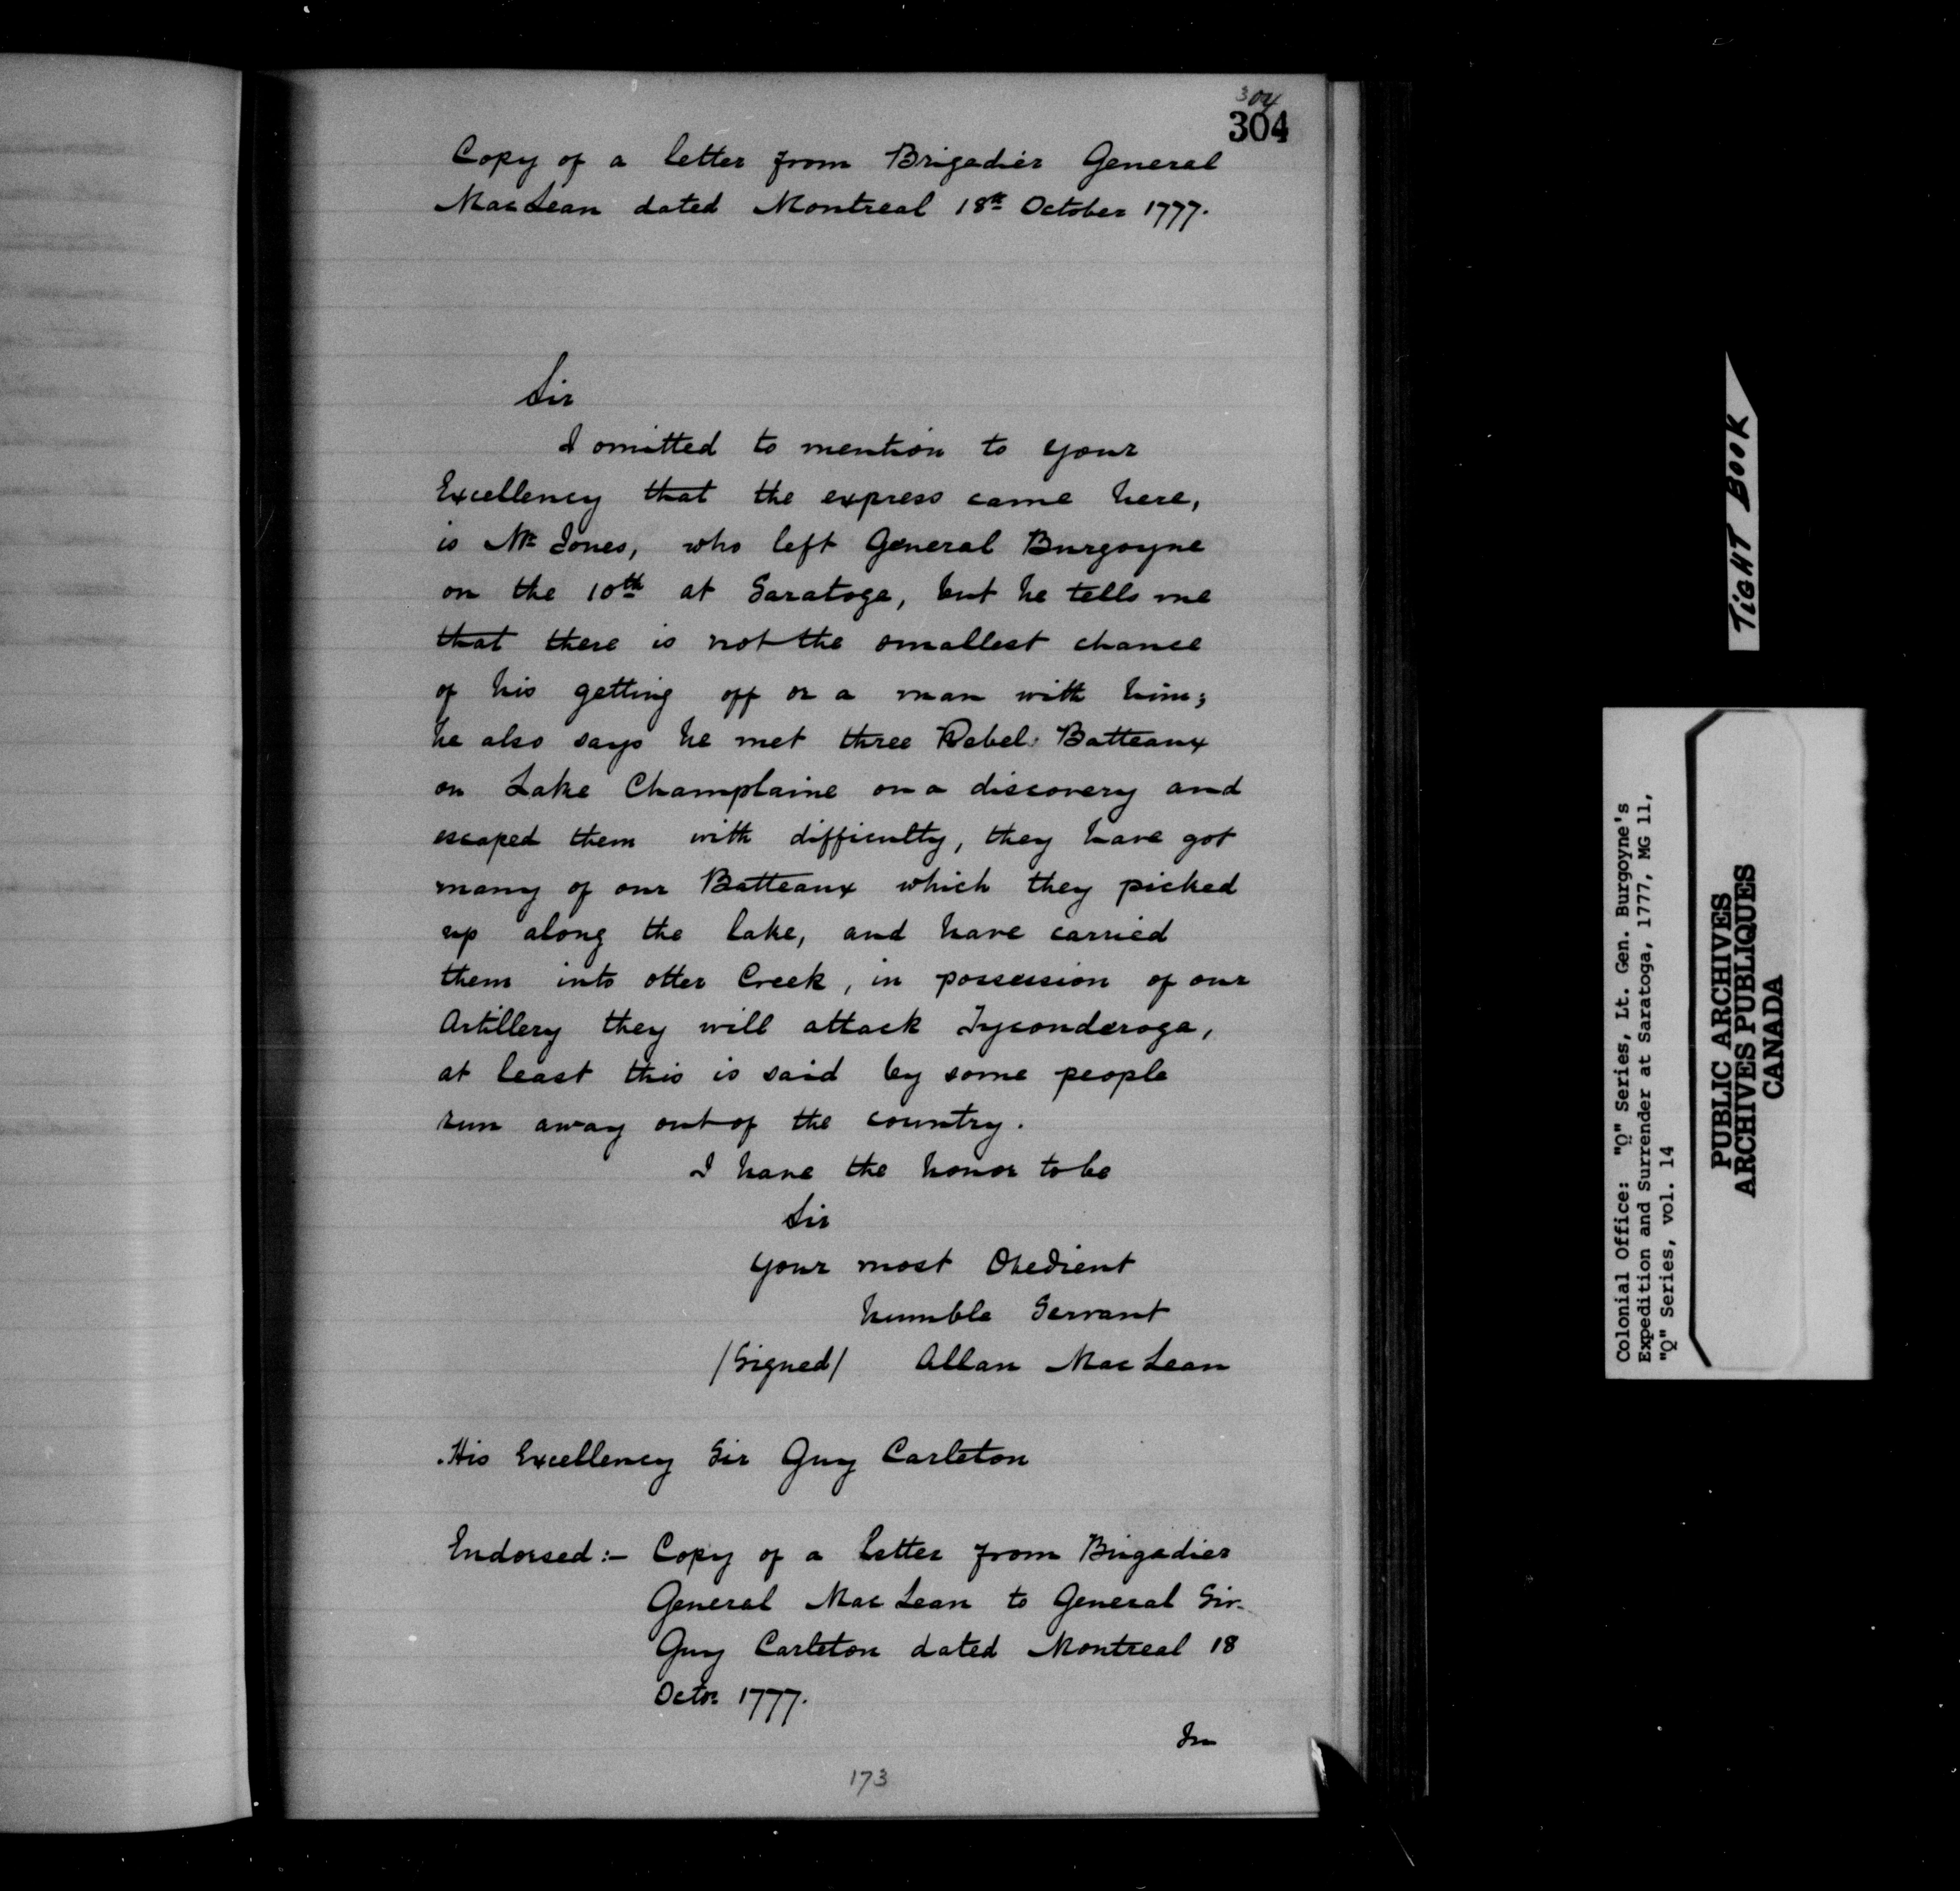 304
304
Copy of a letter from Brigadier General
MacLean dated Montreal 18th October 1777.
Sir
I omitted to mention to your
Excellency that the express came here,
is Mr Jones, who left General Burgoyne
on the 10th at Saratoga, but he tells me
that there is not the smallest chance
of his getting off or a man with him;
he also says he met three Rebel Batteaux
on Lake Champlaine on a discovery and
escaped them with difficulty, they have got
many of our Batteaux which they picked
up along the lake, and have carried
them into otter Creek, in possession of our
Artillery they will attack Tyconderoga,
at least this is said by some people
run away out of the country.
I have the honor to be
Sir
Your most Obedient
humble Servant
/Signed/ Allan MacLean
His Excellency Sir Guy Carleton
Endorsed:- Copy of a letter from Brigadier
General MacLean to General Sir
Guy Carleton dated Montreal 18
Octr 1777.
173
TIGHT BOOK
Colonial Office: "Q" Series, Lt. Gen. Burgoyne's
Expedition and Surrender at Saratoga, 1777, MG 11,
"Q" Series, vol. 14
PUBLIC ARCHIVES
ARCHIVES PUBLIQUES
CANADA